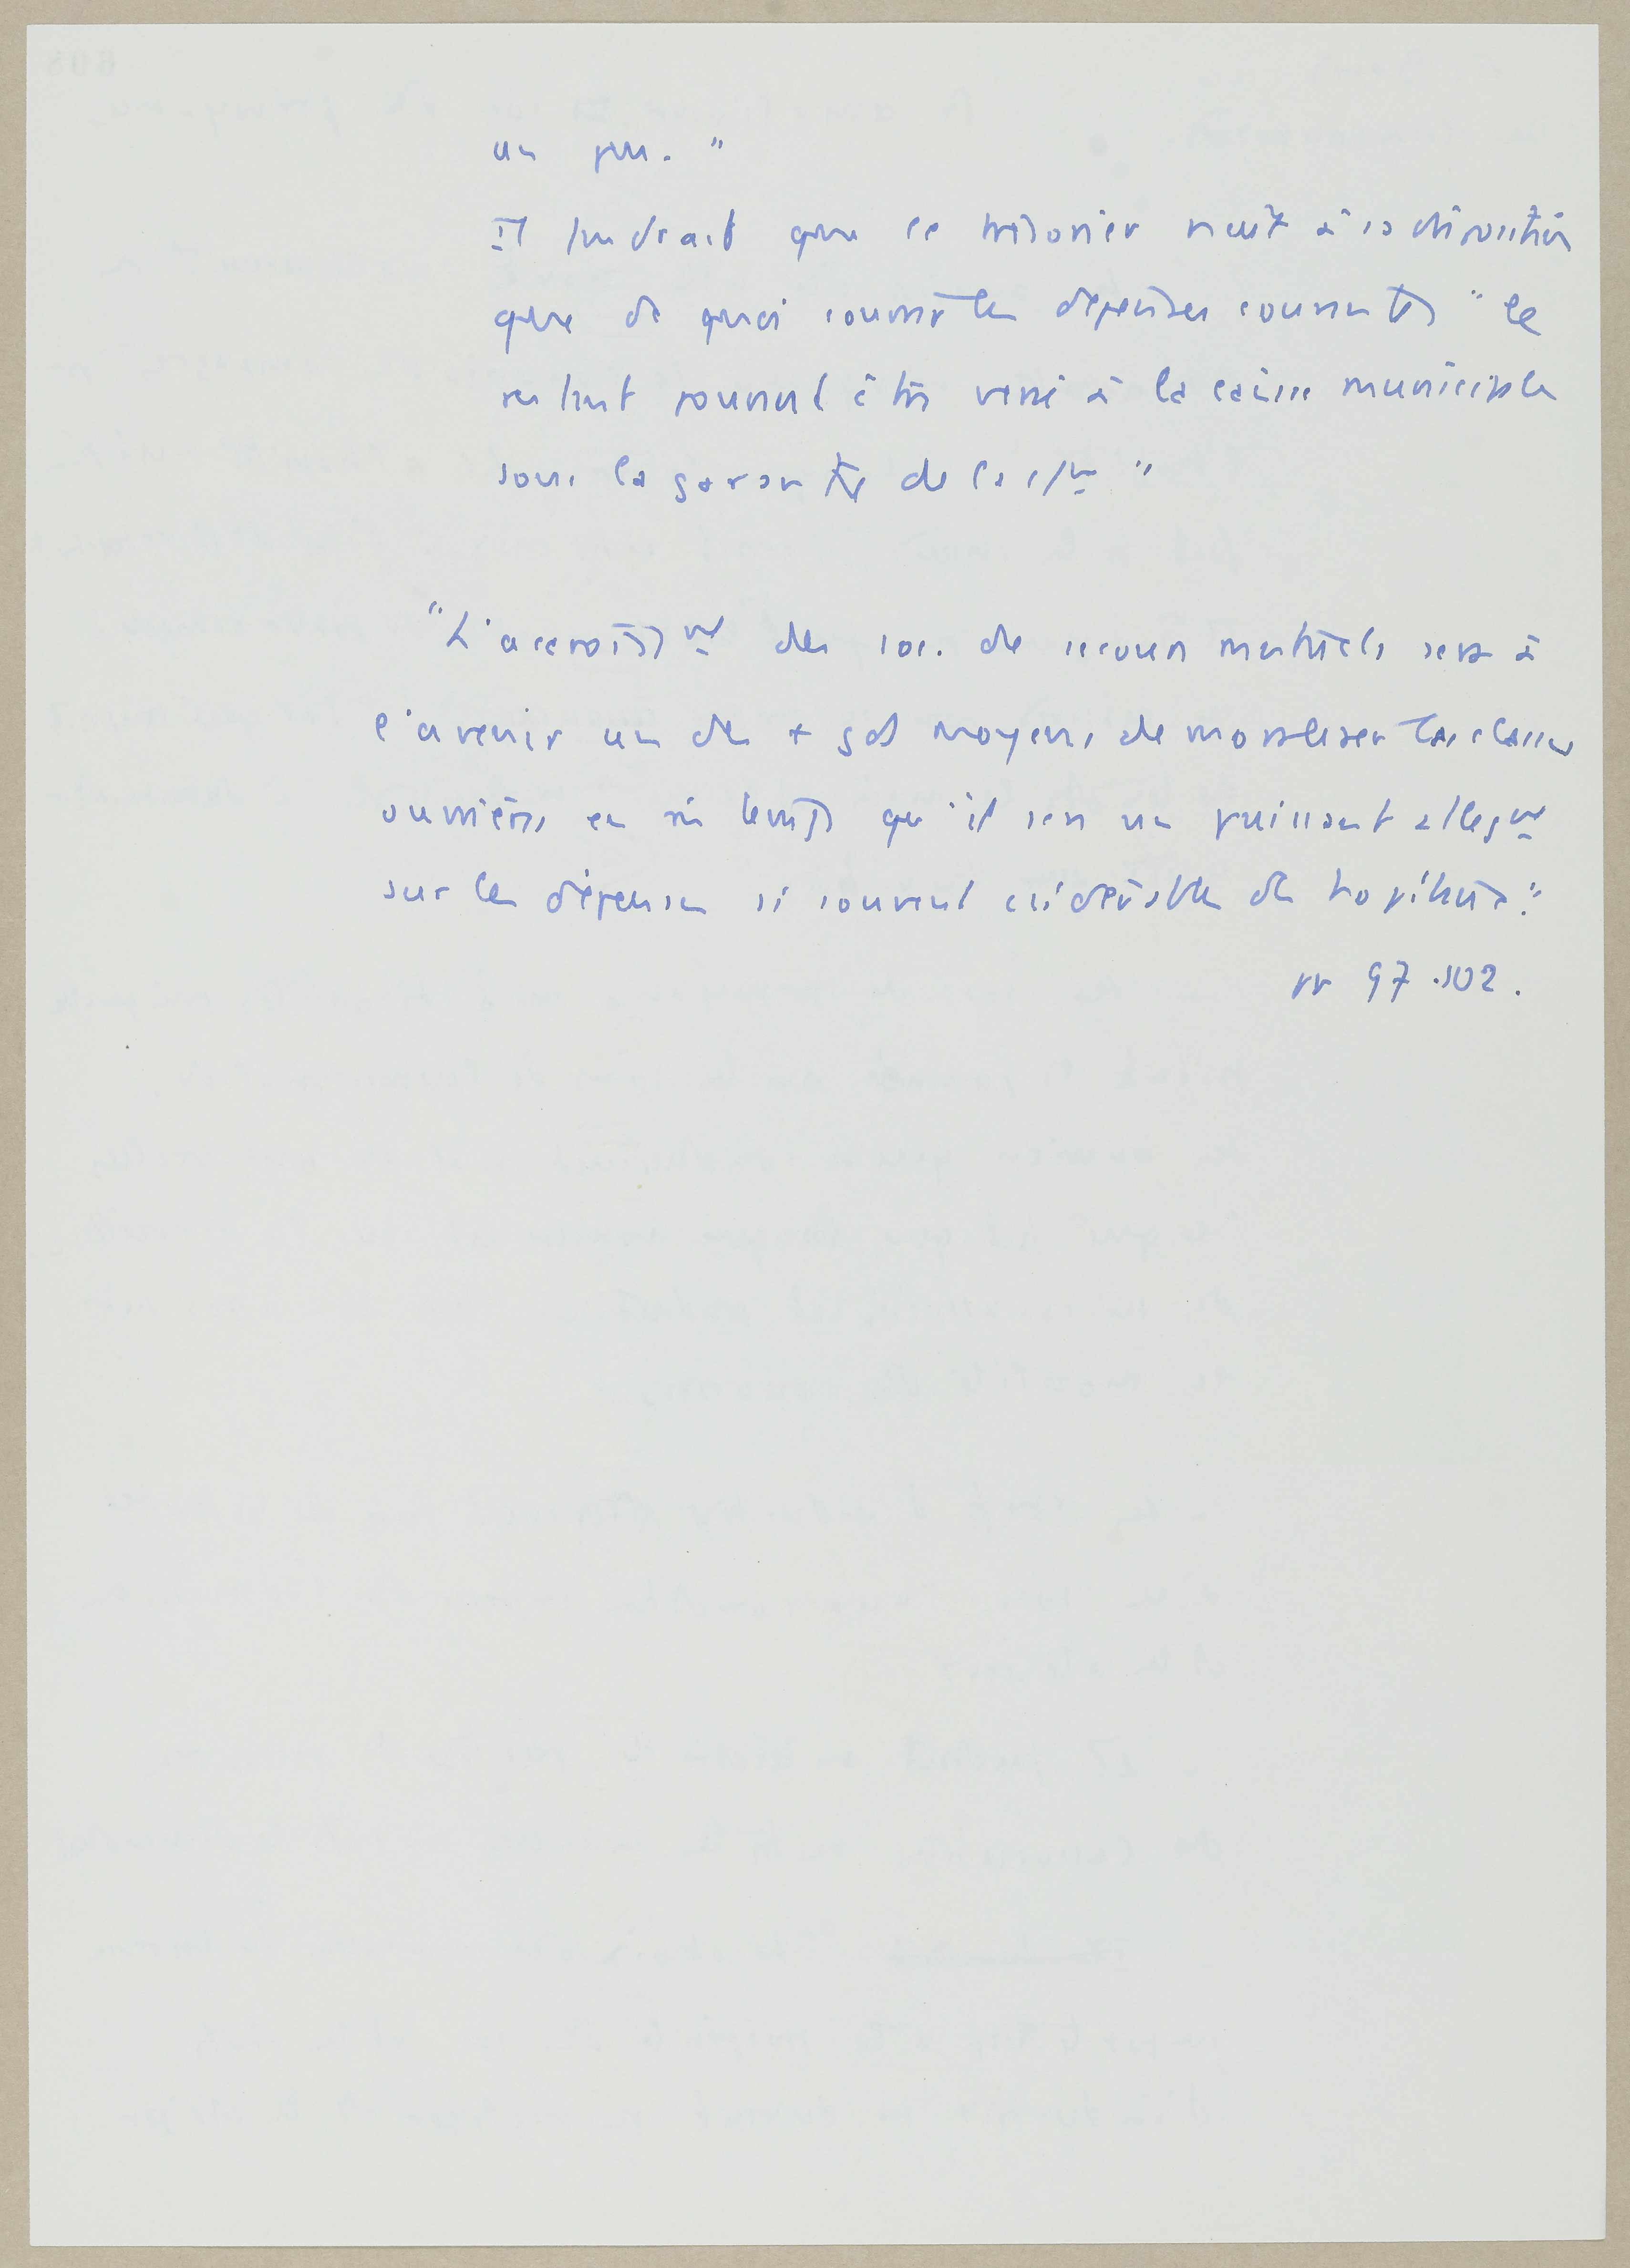 un peu. "
Il faudrait que ce trésorier n'eut à sa disposition
que de quoi couvrir les dépenses courantes " le
restant pouvant être versé à la caisse municipale
sous la garantie de la
"L'accroissmt des soc. de secours mutuels sera à
l'avenir un des + gds moyens de moraliser les classes
ouvrières, en m temps qu'il sera un puissant allegmt
sur les dépenses si souvent csidérables des hopitaux."
pp 97.102.